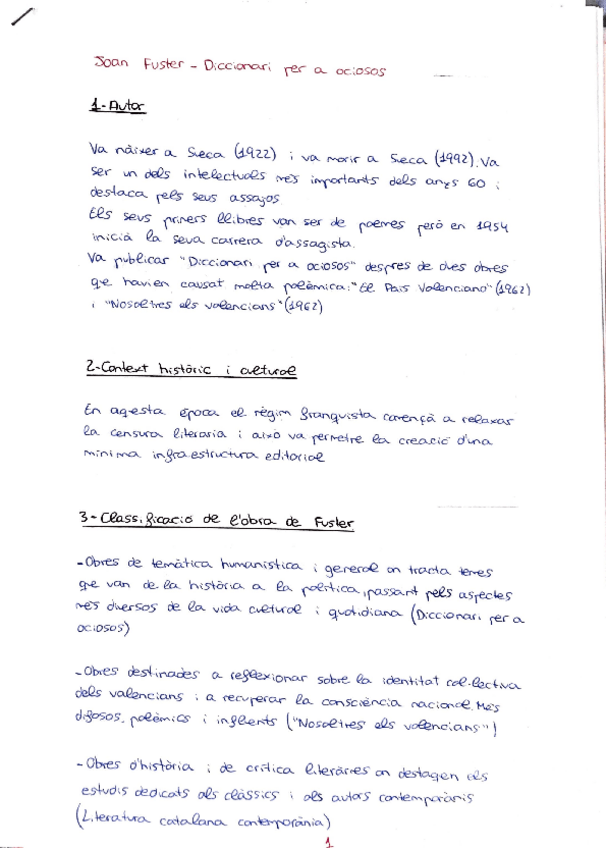 Joan Fuster - Diccionari per a ociosos
1-Autor
Va nàixer a Sueca (1922) i va morir a Sueca (1992). Va
ser un dels intelectuals més importants dels anys 60 i
destaca pels seus assajos.
Els seus primers llibres van ser de poemes però en 1954
inicià la seva carrera d'assagista.
Va publicar "Diccionari per a ociosos" despres de dues obres
que havien causat molta polèmica: "El País Valenciano" (1962)
i "Nosaltres els valencians" (1962)
2-Context històric i cultural
En aquesta època el règim franquista començà a relaxar
la censura literaria i això va permetre la creació d'una
mínima infraestructura editorial
3-Classificació de l'obra de Fuster
-Obres de temàtica humanística i general on tracta temes
que van de la història a la política, passant pels aspectes
més diversos de la vida cultural i quotidiana (Diccionari per a
ociosos)
-Obres destinades a reflexionar sobre la identitat col·lectiva
dels valencians i a recuperar la consciència nacional. Més
difosos, polèmics i influents ("Nosaltres els valencians")
-Obres d'història i de crítica literàries on destaquen els
estudis dedicats als clàssics i als autors contemporànis
(Literatura catalana contemporània)
1